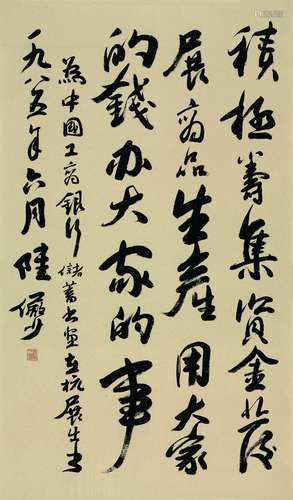 積極籌集資金發
展商品生產用大家
的錢办大家的事
為中國工商銀行儲蓄书画在杭展出
一九八五年六月陸儼少